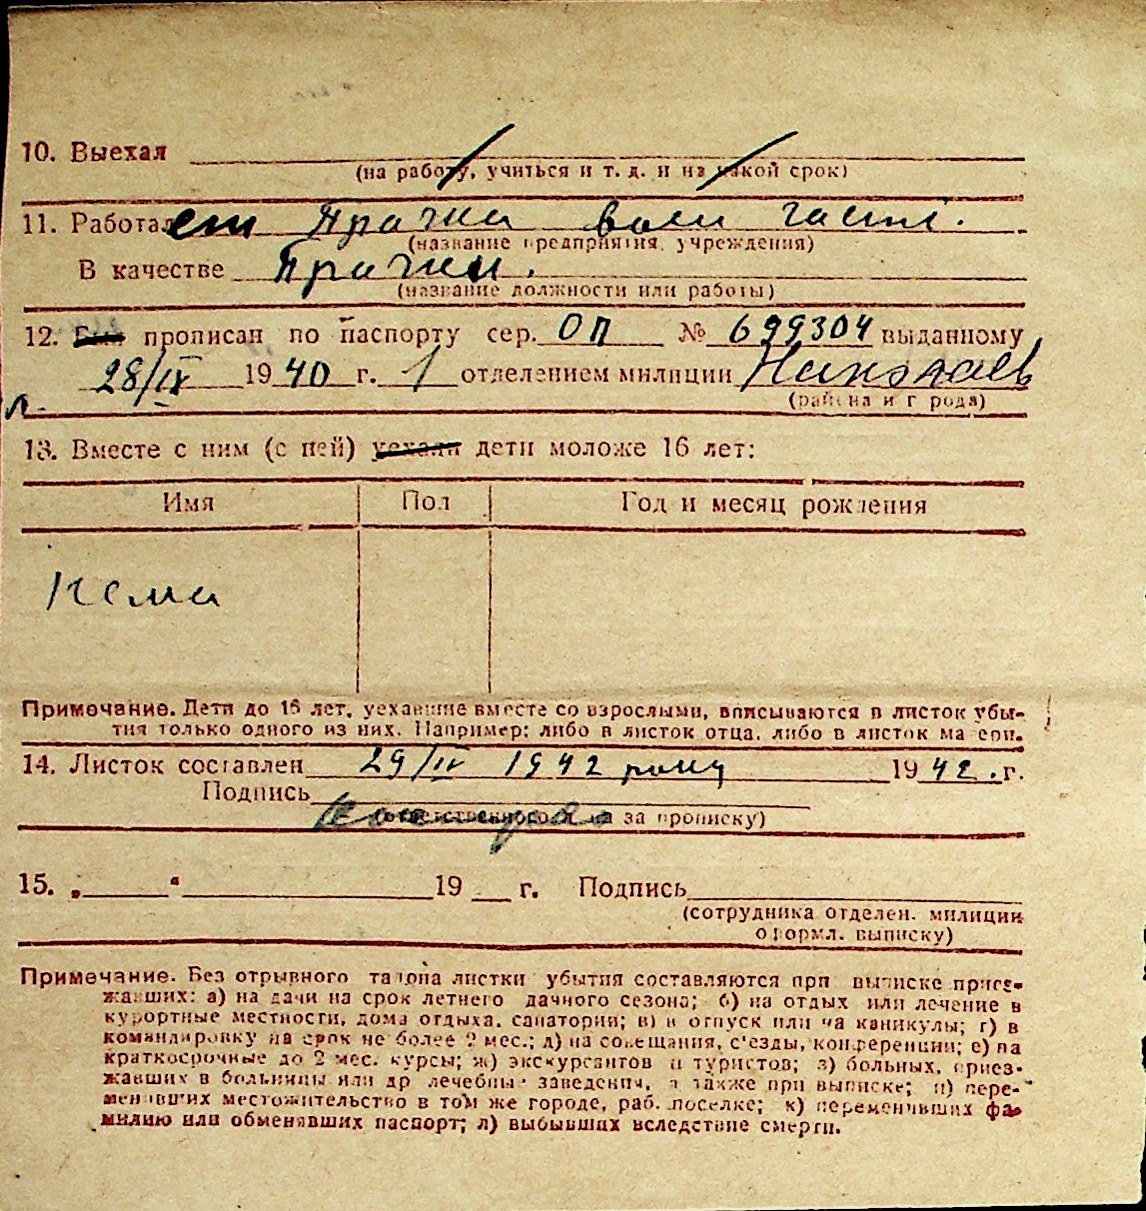 10. Выехал
(на работу, учиться и т. д. и на какой срок)
11. Работает Прачка воен части.
(название предприятия, учреждения)
В качестве Прачки.
(название должности или работы)
12. Был прописан по паспорту сер. ОП № 699304 выданному
28/IX 1940 г. 1 отделением милиции Николаев
(района и города)
13. Вместе с ним (с ней) уехали дети моложе 16 лет:
Имя Пол Год и месяц рождения
Примечание. Дети до 16 лет, уехавшие вместе со взрослыми, вписываются в листок убы-
тия только одного из них. Например: либо в листок отца, либо в листок матери.
14. Листок составлен 29/IV 1942 року 1942. г.
Подпись
(ответственного за прописку)
15. „ “ 19 г. Подпись
(сотрудника отделен. милиции
оформл. выписку)
Примечание. Без отрывного талона листки убытия составляются при выписке приез-
жавших: а) на дачи на срок летнего дачного сезона; б) на отдых или лечение в
курортные местности, дома отдыха, санатории; в) в отпуск или на каникулы; г) в
командировку на срок не более 2 мес.; д) на совещания, с'езды, конференции; е) на
краткосрочные до 2 мес. курсы; ж) экскурсантов и туристов; з) больных, приез-
жавших в больницы или др лечебные заведения, а также при выписке; и) пере-
менивших местожительство в том же городе, раб. поселке; к) переменивших фа-
милию или обменявших паспорт; л) выбывших вследствие смерти.